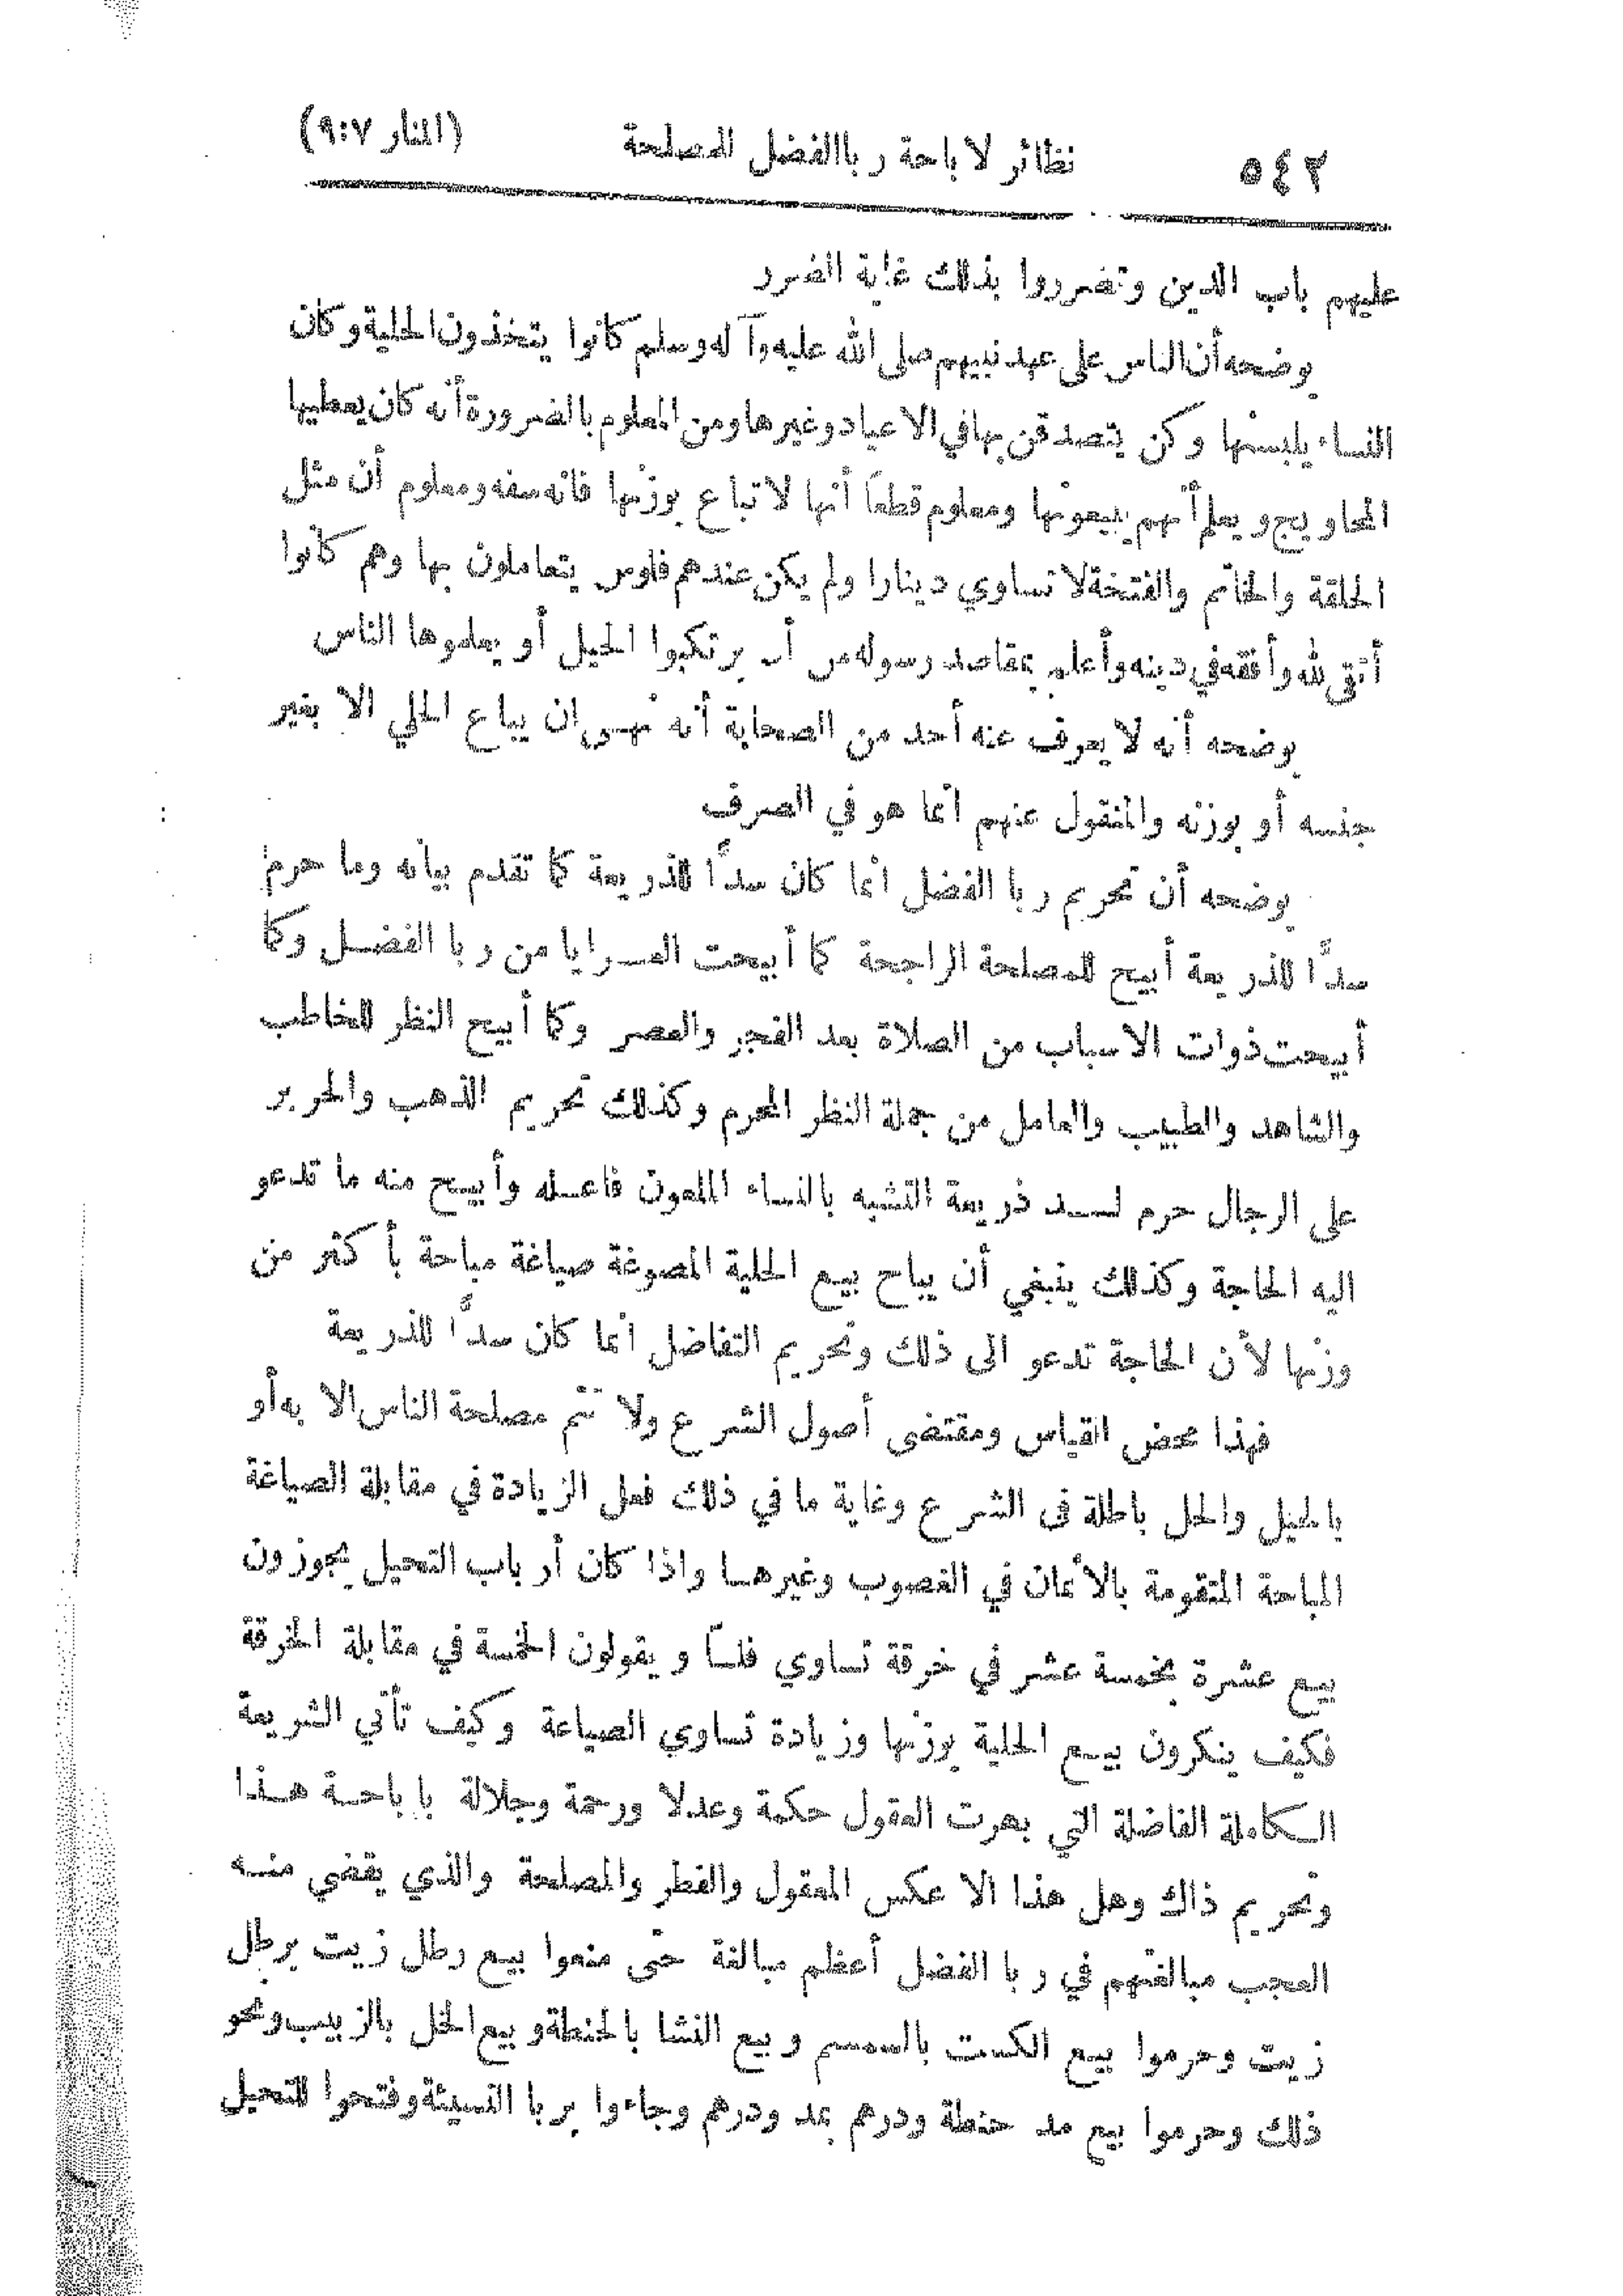 ٥٤٢ نظائر لاباحة ربا الفضل للمصلحة (المنار ٩:٧)
عليهم باب الدين وتضرروا بذلك غاية الضرر
يوضحه أن الناس على عهد نبيهم صلى الله عليه وآله وسلم كانوا يتخذون الحلية وكان
النساء يلبسنها وكن يتصدقن بها في الاعياد وغيرها ومن المعلوم بالضرورة أنه كان يعطيها
المحاويج ويعلم أنهم يبيعونها ومعلوم قطعاً أنها لا تباع بوزنها فانه سفه ومعلوم أن مثل
الحلقة والخاتم والفتخة لا تساوي دينارا ولم يكن عندهم فلوس يتعاملون بها وهم كانوا
أتقى لله وأفقه في دينه وأعلم بمقاصد رسوله من أن يرتكبوا الحيل أو يعلموها الناس
يوضحه أنه لا يعرف عنه أحد من الصحابة أنه نهى ان يباع الحلي الا بغير
جنسه أو بوزنه والمنقول عنهم انما هو في الصرف
يوضحه أن تحريم ربا الفضل انما كان سدًا للذريعة كما تقدم بيانه وما حرم
سدًا للذريعة أبيح للمصلحة الراجحة كما أبيحت العرايا من ربا الفضل وكما
أبيحت ذوات الاسباب من الصلاة بعد الفجر والعصر وكما أبيح النظر للخاطب
والشاهد والطبيب والعامل من جملة النظر المحرم وكذلك تحريم الذهب والحرير
على الرجال حرم لسد ذريعة التشبه بالنساء الملعون فاعله وأبيح منه ما تدعو
اليه الحاجة وكذلك ينبغي أن يباح بيع الحلية المصوغة صياغة مباحة بأكثر من
وزنها لأن الحاجة تدعو الى ذلك وتحريم التفاضل انما كان سدًا للذريعة
فهذا محض القياس ومقتضى أصول الشرع ولا تتم مصلحة الناس الا به أو
بالحيل والحل باطلة في الشرع وغاية ما في ذلك فعل الزيادة في مقابلة الصياغة
المباحة المتقومة بالأثمان في الغصوب وغيرها واذا كان أرباب التحيل يجوزون
بيع عشرة بخمسة عشر في خرقة تساوي فلسًا ويقولون الخمسة في مقابلة الخرقة
فكيف ينكرون بيع الحلية بوزنها وزيادة تساوي الصياغة وكيف تأتي الشريعة
الكاملة الفاضلة التي بهرت العقول حكمة وعدلا ورحمة وجلالة باباحة هذا
وتحريم ذاك وهل هذا الا عكس المعقول والفطر والمصلحة والذي يقضي منه
العجب مبالغتهم في ربا الفضل أعظم مبالغة حتى منعوا بيع رطل زيت برطل
زيت وحرموا بيع الكسب بالسمسم وبيع النشا بالحنطة وبيع الخل بالزبيب ونحو
ذلك وحرموا بيع مد حنطة ودرهم بمد ودرهم وجاءوا بربا النسيئة وفتحوا للتحيل